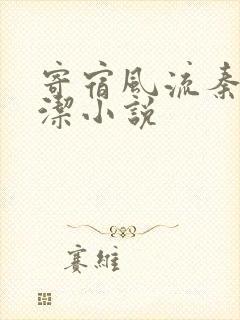 寄宿風流秦
潔小說
賽維